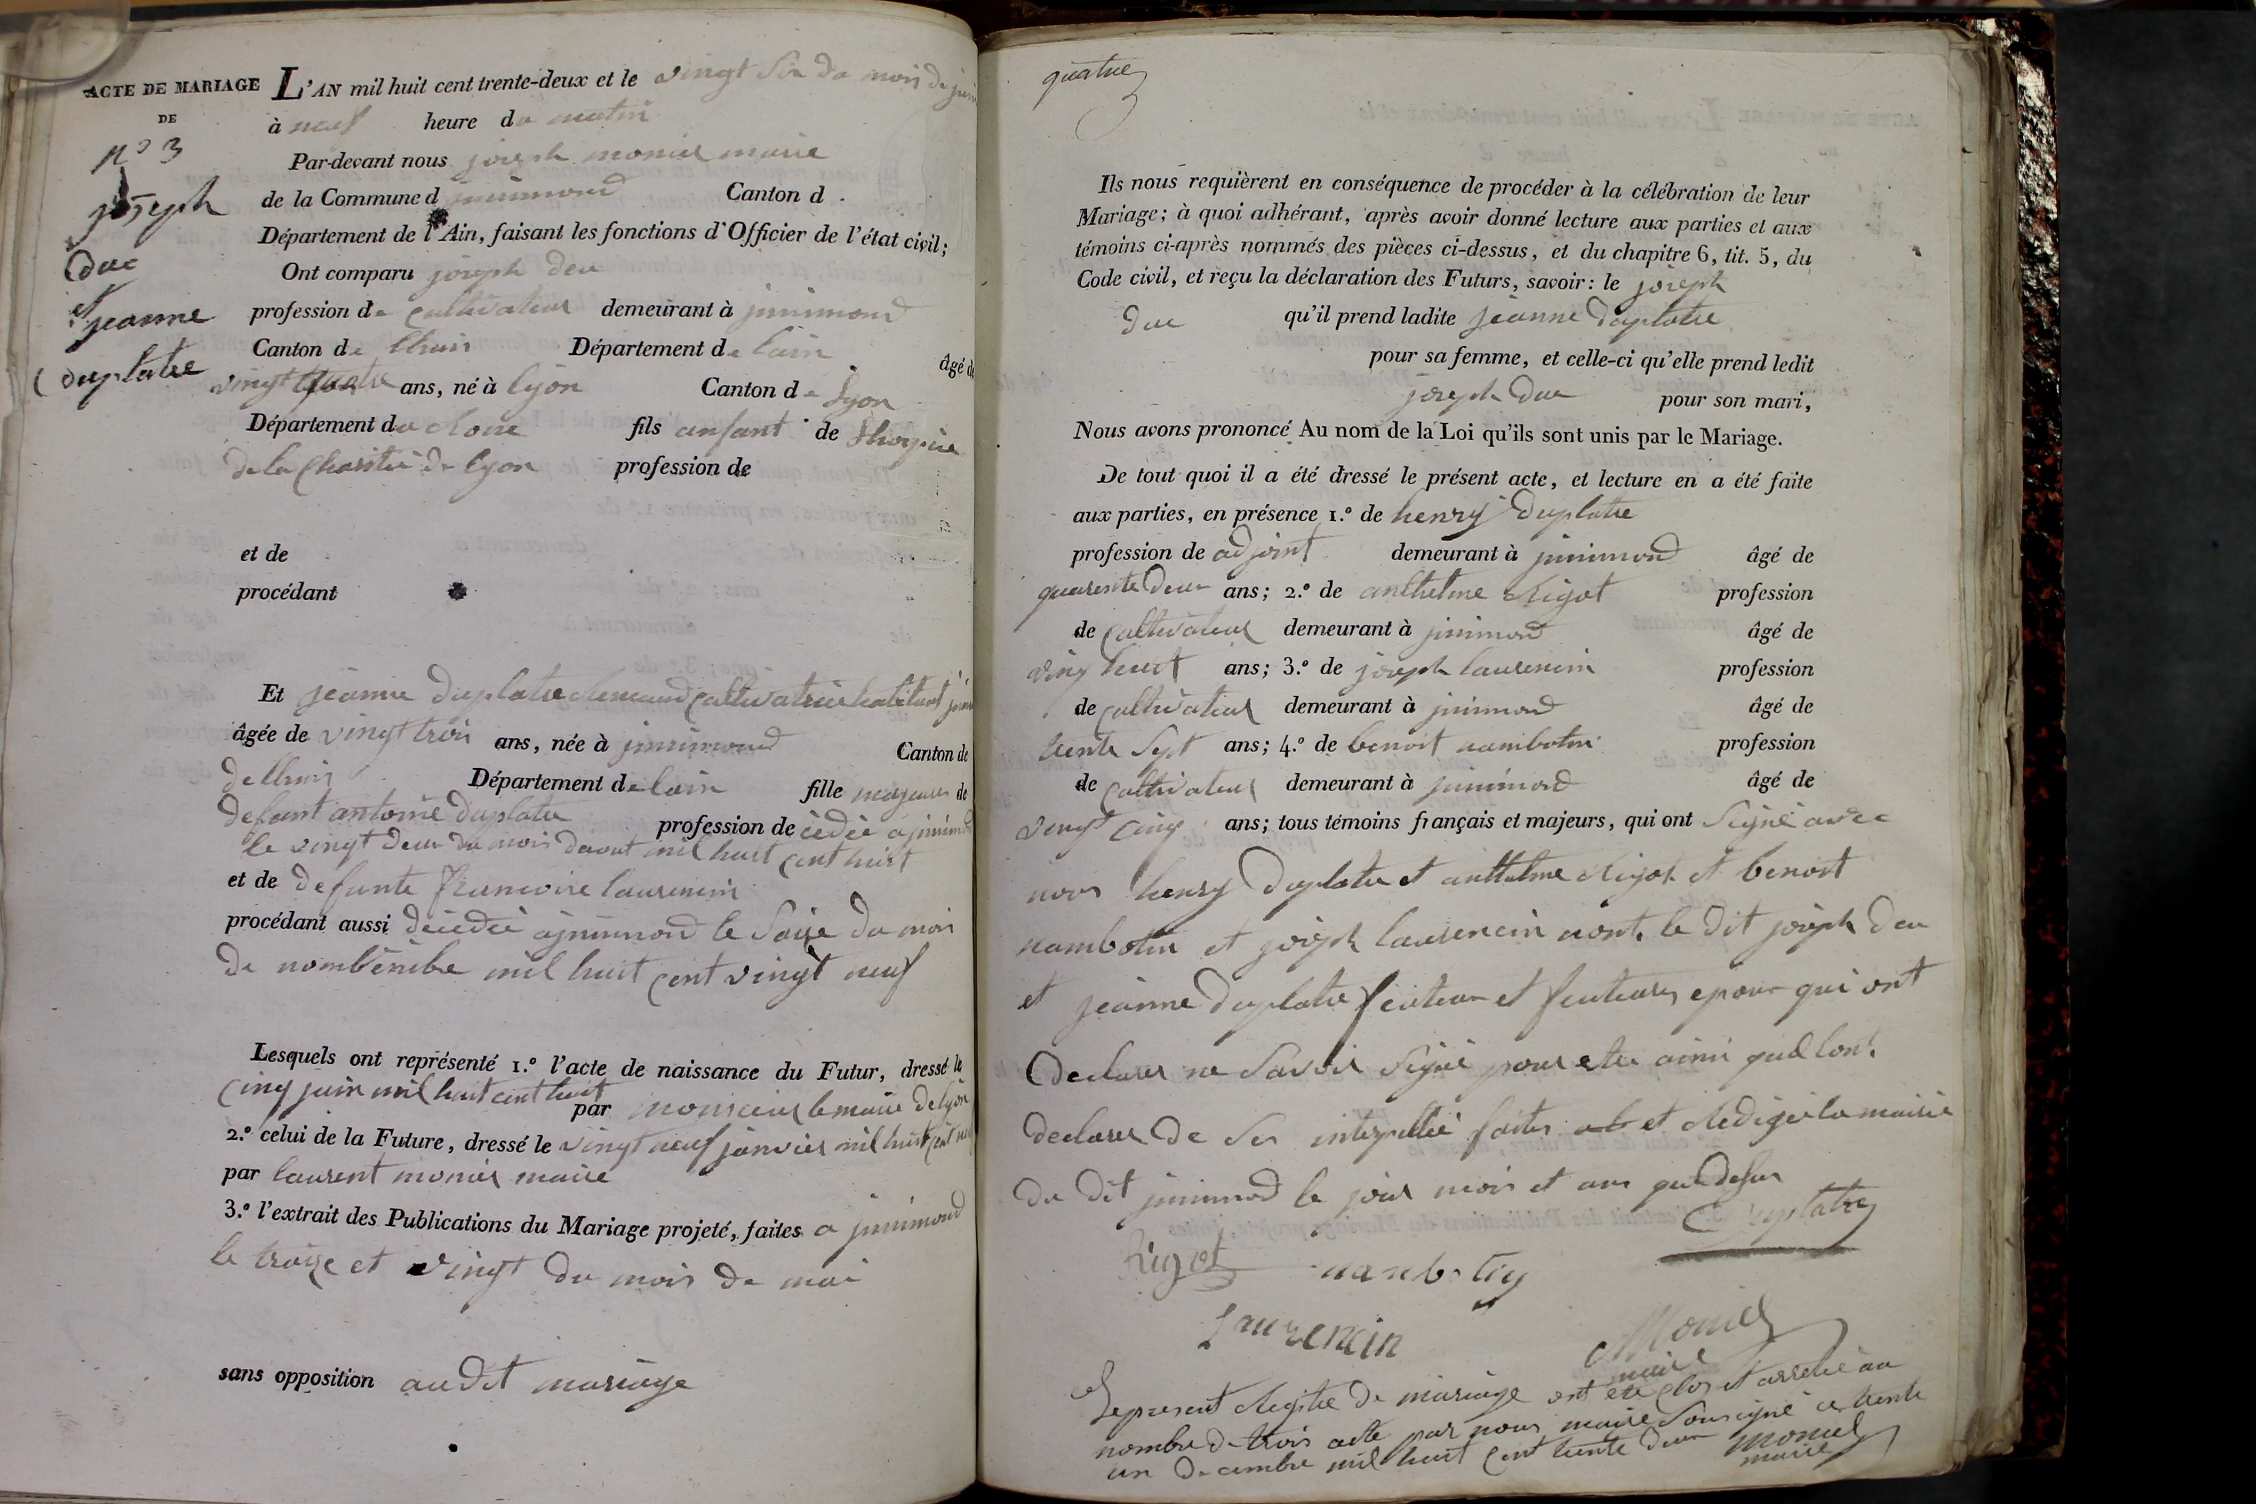 ACTE DE MARIAGE
DE
n° 3
joseph
duc
et
jeanne
duplatre
L'AN mil huit cent trente-deux et le vingt Six du mois de juin
à neuf heure du matin
Par-devant nous joseph monier maire
de la Commune d jnnimond Canton d
Département de l'Ain, faisant les fonctions d'Officier de l'état civil;
Ont comparu joseph duc
profession de cultivateur demeurant à jnnimond
Canton de lhuis Département de lain âgé de
vingt quatre ans, né à lyon Canton de Lyon
Département du Rone fils anfant de Lhospice
de la Charitée de lyon profession de
et de
procédant
Et jeanne duplatre demeurant Cultivatrice habitant
âgée de vingt trois ans, née à jnnimond Canton de
de lhuis Département de lain fille majeure de
defunt antoine duplatre profession de dédée a jnnimond
le vingt deux du mois daout mil huit cent huit
et de defunte francoise laurencin
procédant aussi décédée a jnnimond le Saize du mois
de nombembre mil huit cent vingt neuf
Lesquels ont représenté 1.° l'acte de naissance du Futur, dressé le
cinq juin mil huit cent huit par monsieur le maire de lyon
2.° celui de la Future, dressé le vingt neuf janvier mil huit cent neuf
par laurent monier maire
3.° l'extrait des Publications du Mariage projeté, faites a jnnimond
le traize et vingt du mois de mai
sans opposition audit mariage
quatre
Ils nous requièrent en conséquence de procéder à la célébration de leur
Mariage; à quoi adhérant, après avoir donné lecture aux parties et aux
témoins ci-après nommés des pièces ci-dessus, et du chapitre 6, tit. 5, du
Code civil, et reçu la déclaration des Futurs, savoir: le joseph
duc qu'il prend ladite jeanne duplatre
pour sa femme, et celle-ci qu'elle prend ledit
joseph duc pour son mari,
Nous avons prononcé Au nom de la Loi qu'ils sont unis par le Mariage.
De tout quoi il a été dressé le présent acte, et lecture en a été faite
aux parties, en présence 1.° de henry duplatre
profession de adjoint demeurant à jnnimond âgé de
quarente deux ans; 2.° de anthelme Rigot profession
de cultivateur demeurant à jnnimond âgé de
ving huit ans; 3.° de joseph laurencin profession
de cultivateur demeurant à jnnimond âgé de
trente Sept ans; 4.° de benoit nambotin profession
de cultivateur demeurant à jnnimond âgé de
vingt cinq ans; tous témoins français et majeurs, qui ont Signé avec
nous henry duplatre et anthelme Rigot et benoit
nambotin et joseph laurencin le dit joseph duc
et jeanne duplatre feuteur et feuteure epoux qui ont
declarer ne Savoir Signé pour etre ainsi quil lont
declarer de Ser interpellé faites et Redigé la mairie
du dit jnnimond le jour mois et an que desus
Duplatre
Rigot nambotin
Laurencin
Monier
maire
Le present Registre de mariage ont ete clos et arreté au
nombre de trois acte par nous maire Sousigné ce trente
un decembre mil huit cent trente deux monier
maire